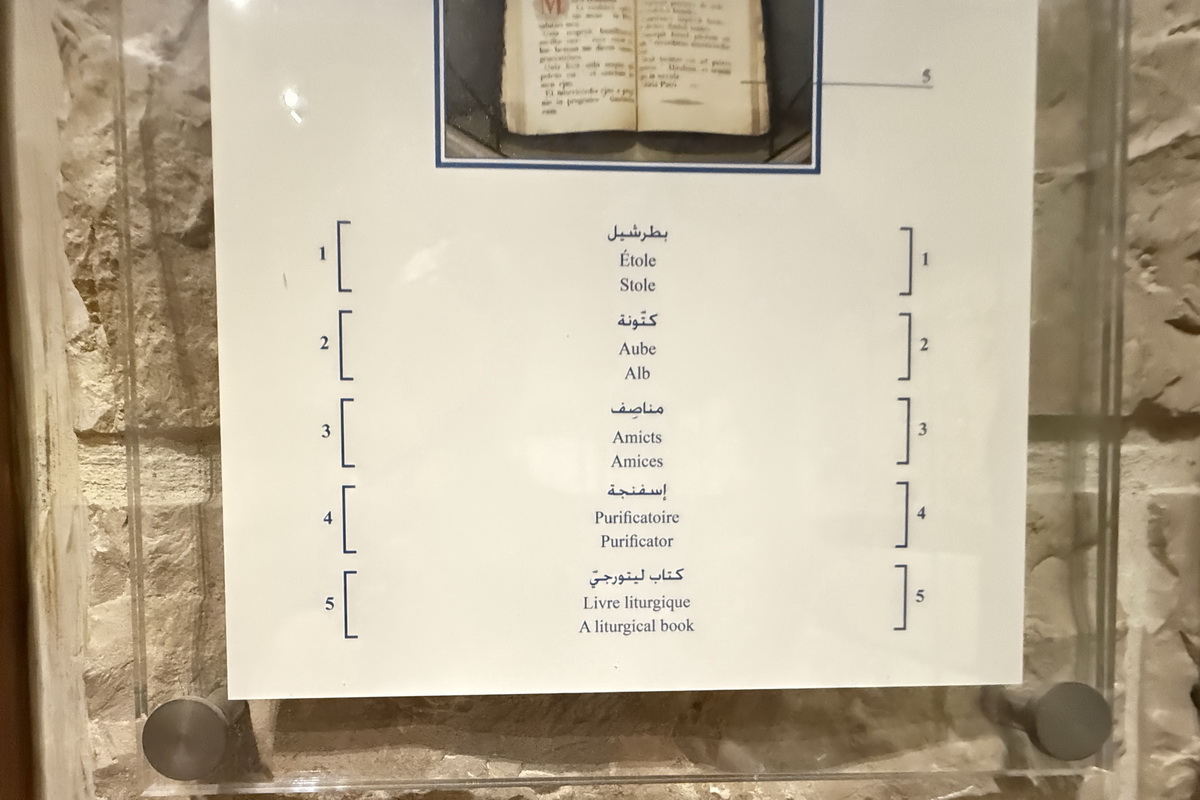 5
1 بطرشيل 1
Étole
Stole
2 كتّونة 2
Aube
Alb
3 مناصِف 3
Amicts
Amices
4 إسفنجة 4
Purificatoire
Purificator
5 كتاب ليتورجيّ 5
Livre liturgique
A liturgical book